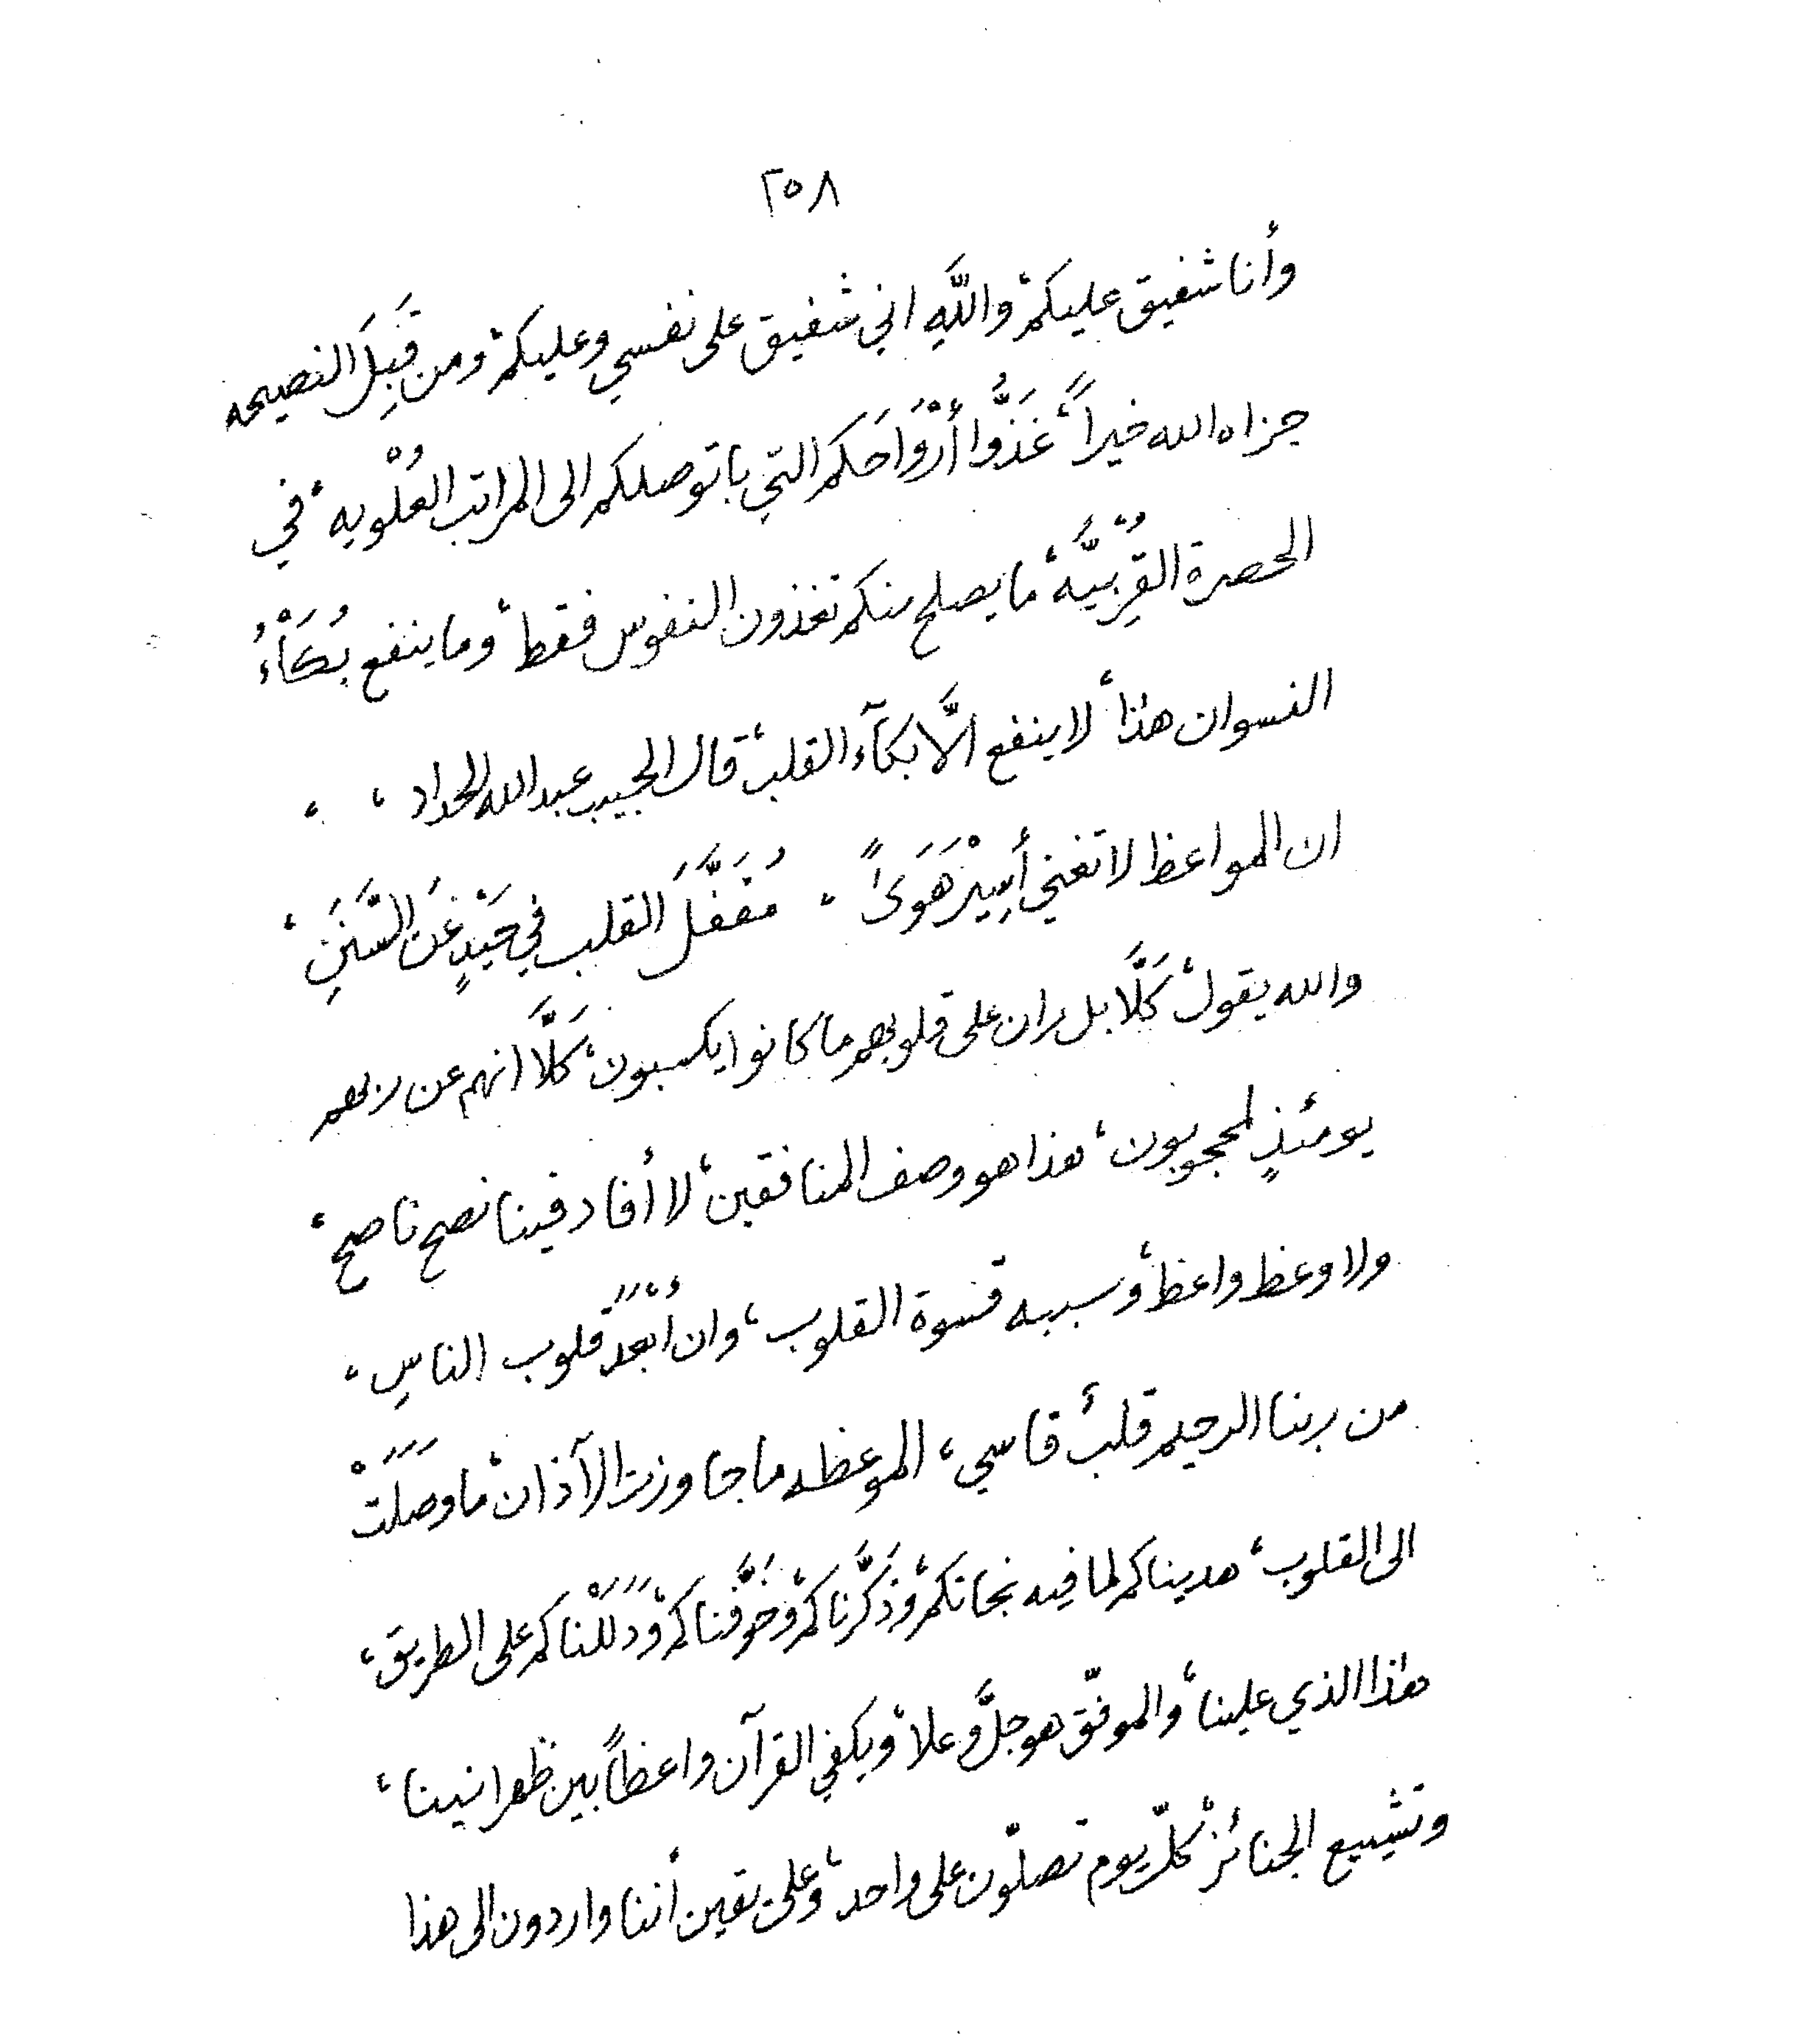 ٢٥٨
وأنا شفيق عليكم، والله اني شفيق على نفسي وعليكم، ومن قَبِلَ النصيحه
جزاه الله خيراً، غَذُّوا أَرْوَاحَكم التي باتوصلكم الى المراتب العُلْويه، في
الحضرة القُرْبِيَّه، ما يصلح منكم تغذون النفوس فقط، وما ينفع بُكَآءُ
النسوان هذا، لا ينفع الَّا بكآء القلب، قال الحبيب عبدالله الحداد ، ،
ان المواعظ لا تغني أَسِيْرَ هَوَىً ، مُقَفَّلَ القلب في حَيْدٍ عَنِ السَّنَنِ ،
والله يقول، كَلَّا بل ران على قلوبهم ما كانوا يكسبون، كَلَّا انهم عن ربهم
يومئذٍ لمحجوبون، هذا هو وصف المنافقين، لا أفاد فينا نصح ناصح ،
ولا وعظ واعظ، وسببه قسوة القلوب، وان أَبْعَدَ قلوب الناسِ ،
من ربنا الرحيم قلبٌ قاسي، الموعظه ما جاوزت الآذان، ما وصَلَتْ
الى القلوب، هديناكم لما فيه نجاتكم، وذَكَّرناكم، وخَوَّفناكم، ودَلَلْناكم على الطريق ،
هذا الذي علينا، والموفّق هو جلَّ وعلا، ويكفي القرآن واعظاً بين ظهرانينا ،
وتشييع الجنائز، كلّ يوم تصلّون على واحد، وعلى يقين أننا واردون الى هذا